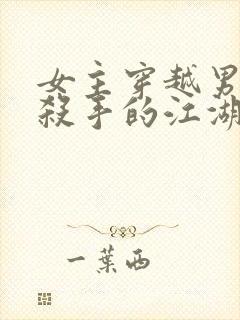 女主穿越男
殺手的江湖
一葉西